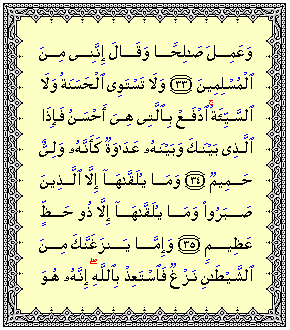 وَعَمِلَ صَٰلِحًا وَقَالَ إِنَّنِى مِنَ
ٱلْمُسْلِمِينَ ﴿٣٣﴾ وَلَا تَسْتَوِى ٱلْحَسَنَةُ وَلَا
ٱلسَّيِّئَةُ ۚ ٱدْفَعْ بِٱلَّتِى هِىَ أَحْسَنُ فَإِذَا
ٱلَّذِى بَيْنَكَ وَبَيْنَهُۥ عَدَٰوَةٌ كَأَنَّهُۥ وَلِىٌّ
حَمِيمٌ ﴿٣٤﴾ وَمَا يُلَقَّىٰهَآ إِلَّا ٱلَّذِينَ
صَبَرُوا۟ وَمَا يُلَقَّىٰهَآ إِلَّا ذُو حَظٍّ
عَظِيمٍ ﴿٣٥﴾ وَإِمَّا يَنزَغَنَّكَ مِنَ
ٱلشَّيْطَٰنِ نَزْغٌ فَٱسْتَعِذْ بِٱللَّهِ ۖ إِنَّهُۥ هُوَ